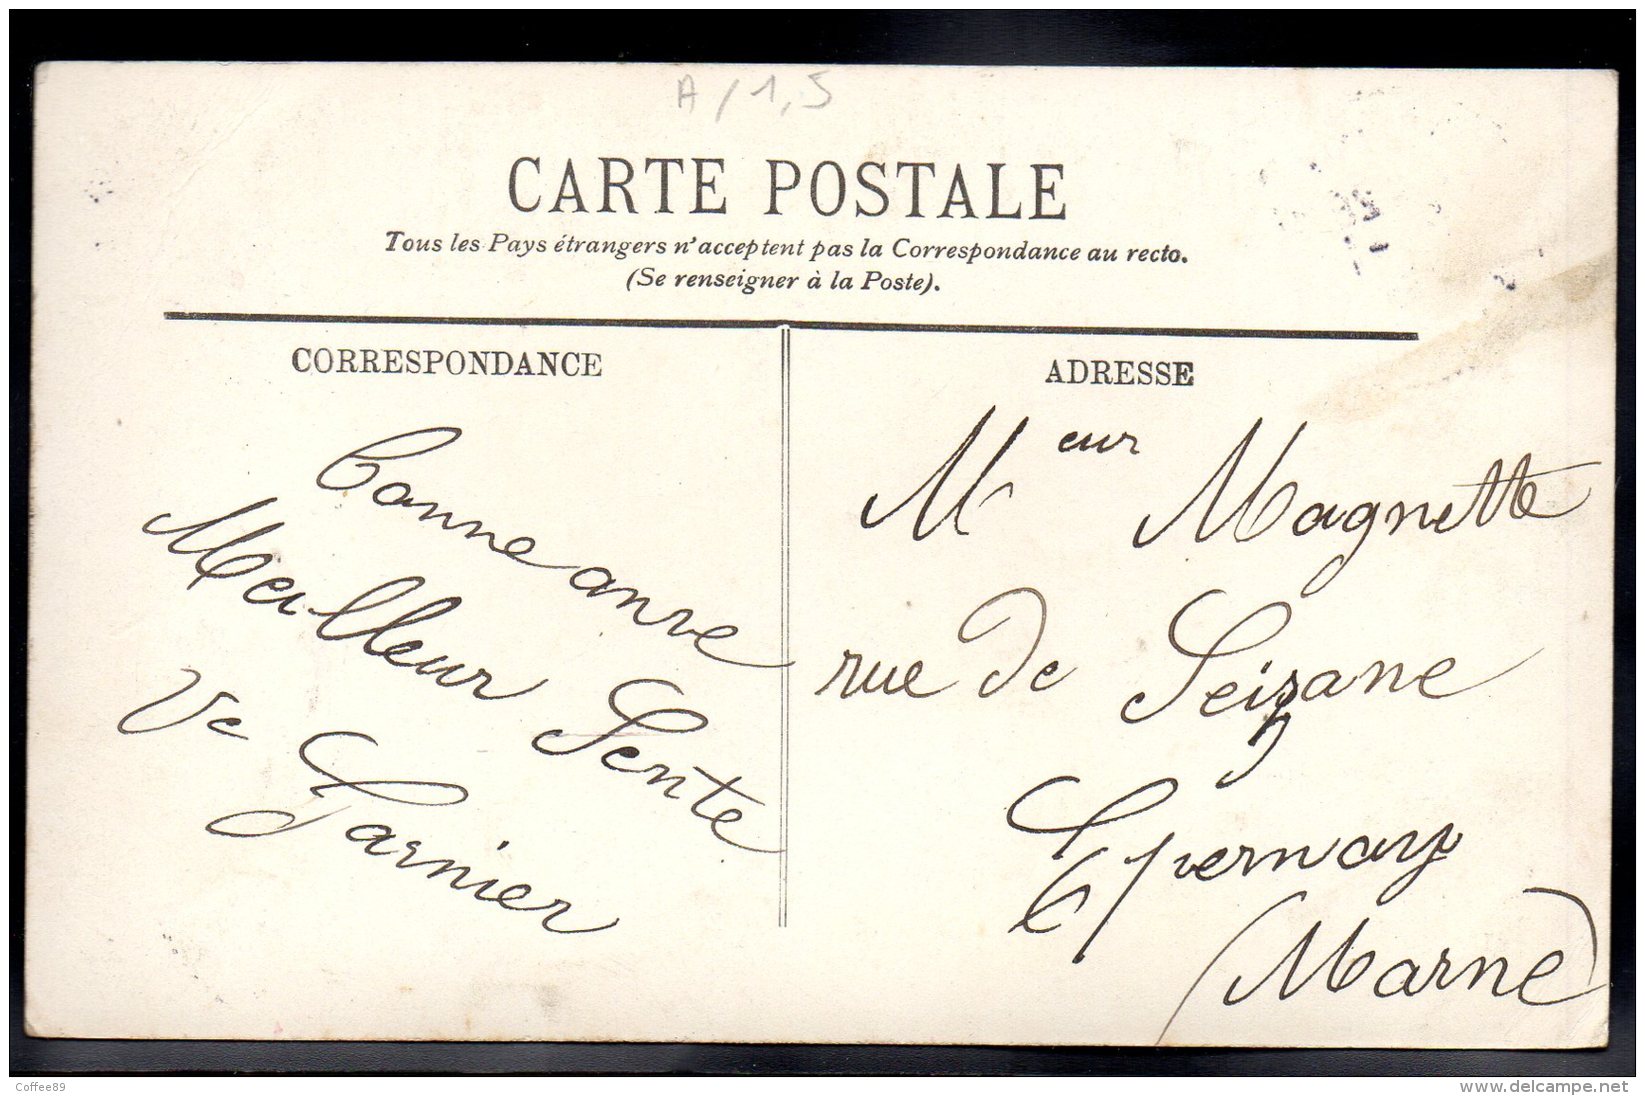 A/1,5
CARTE POSTALE
Tous les Pays étrangers n'acceptent pas la Correspondance au recto.
(Se renseigner à la Poste).
CORRESPONDANCE
Bonne anne
Meilleur Sente
Ve Garnier
ADRESSE
Meur Magnette
rue de Seizane
Epernay
(Marne)
Coffee89
www.delcampe.net